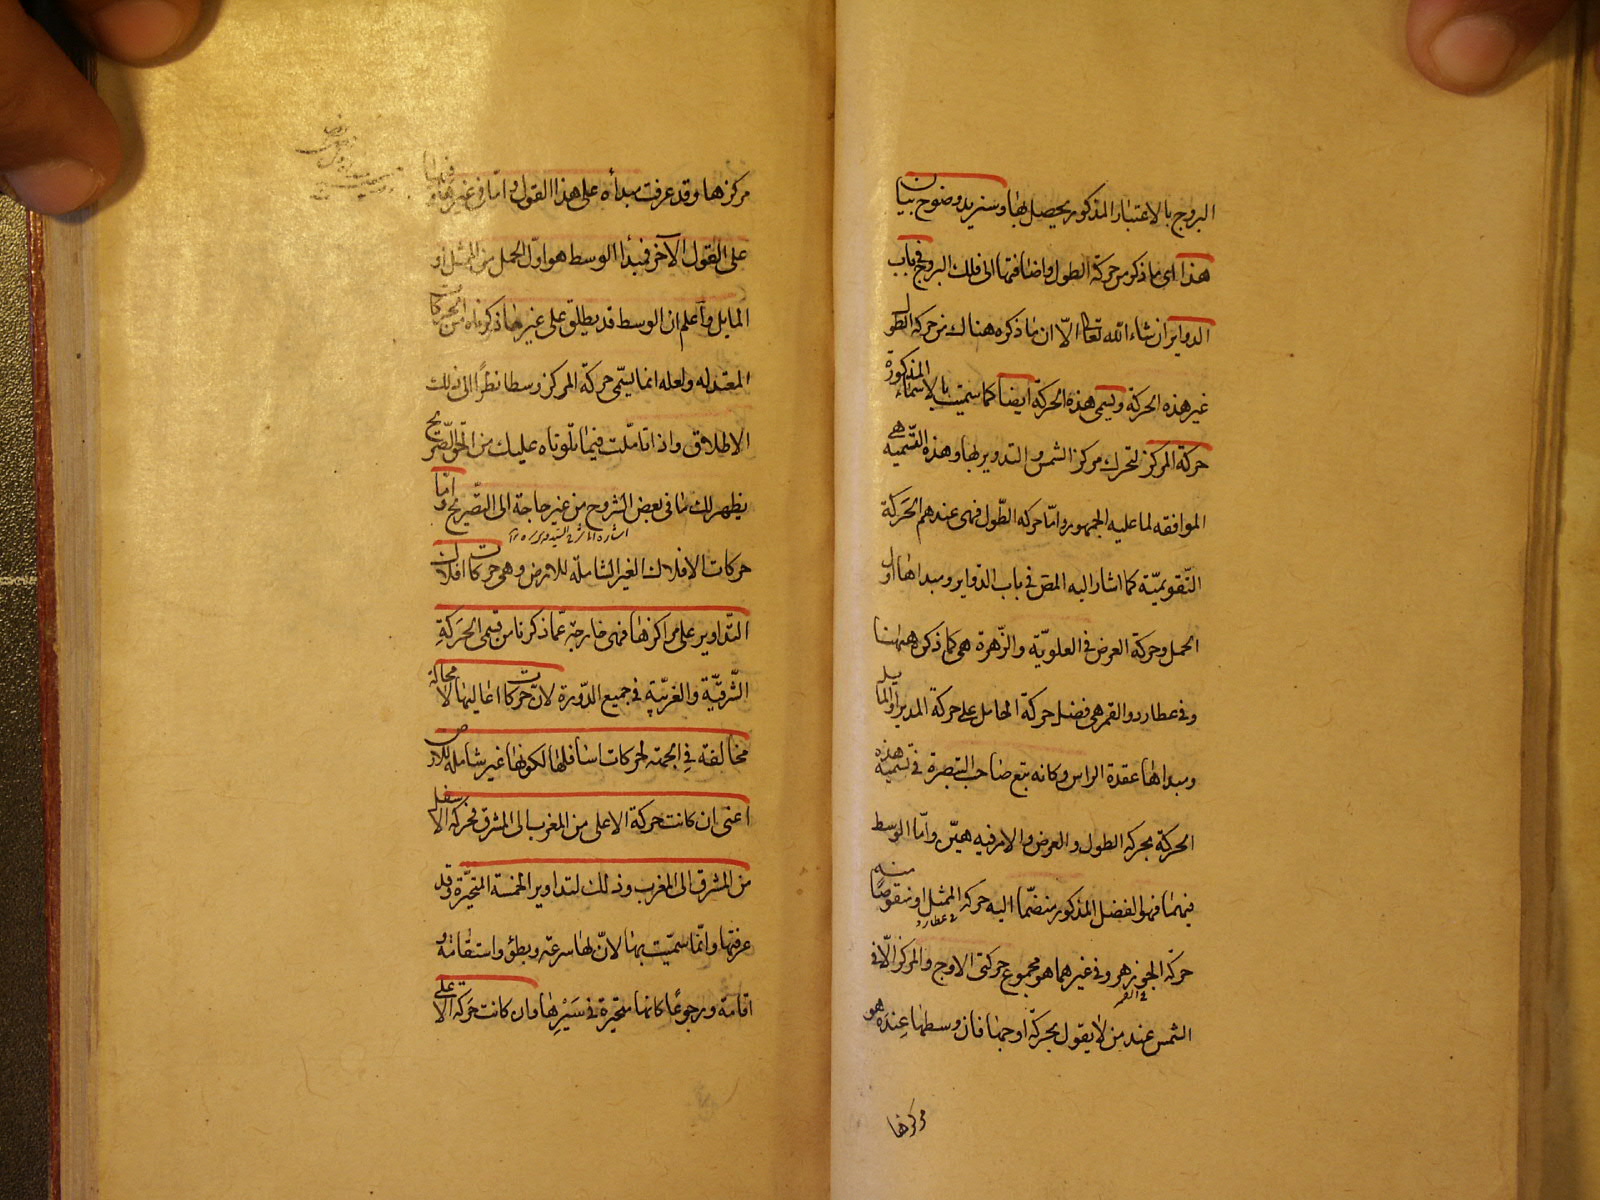 البروج بالاعتبار المذكور يحصل بها وسنزيد وضوح بيان
هذا اى ما ذكر من حركة الطول واضافتها الى فلك البروج فى باب
الدواير ان شاء الله تعالى الا ان ما ذكره هناك من حركة الطول
غير هذه الحركة ويسمى هذه الحركة ايضا كما سميت بالاسماء المذكورة
حركة المركز لتحرك مركز الشمس والتدوير بها وهذه التسمية هى
الموافقه لما عليه الجمهور واما حركه الطول فهى عندهم الحركة
التقويمية كما اشار اليه المص فى باب الدواير ومبداها اول
الحمل وحركة العرض فى العلوية والزهرة هى كما ذكره ههنا
وفى عطارد والقمر هى فضل حركة الحامل على حركة المدير او المايل
ومبداها عقدة الراس وكانه تبع صاحب التبصرة فى تسمية هذه
الحركة بحركه الطول والعرض والامر فيه هين واما الوسط
فيهما فهو الفضل المذكور منضما اليه حركه الممثل او منقوصا منه
فى عطارد
حركة الجوزهر وفى غيرهما هو مجموع حركتى الاوج والمركز الا فى
فى القمر
الشمس عند من لا يقول بحركة اوجها فان وسطها عنده هو
مركزها
مركزها وقد عرفت مبدأه على هذا القول واما فى غيرها وفيها
على القول الآخر فمبدأ الوسط هو اول الحمل من الممثل او
المايل واعلم ان الوسط قد يطلق على غير ما ذكرناه من الحركات
المعتدله ولعله انما يسمى حركة المركز وسطا نظرا الى ذلك
الاطلاق واذا تاملت فيما تلوناه عليك من الحق الصريح
يظهر لك ما فى بعض الشروح من غير حاجة الى التصريح واما
حركات الافلاك الغير الشاملة للارض وهى حركات افلاك
التداوير على مراكزها فهى خارجة عما ذكرنا من قسمى الحركة
الشرقية والغربية فى جميع الدورة لان حركات اعاليها لا محالة
مخالفة فى الجهة لحركات اسافلها لكونها غير شاملة للارض
اعنى ان كانت حركة الاعلى من المغرب الى المشرق فحركة الاسفل
من المشرق الى المغرب وذلك لتداوير الخمسة المتحيرة وقد
عرفتها وانما سميت بها لان لها سرعة وبطؤ واستقامة و
اقامة ورجوعا كانها متحيرة فى سيرها وان كانت حركة الاعلى